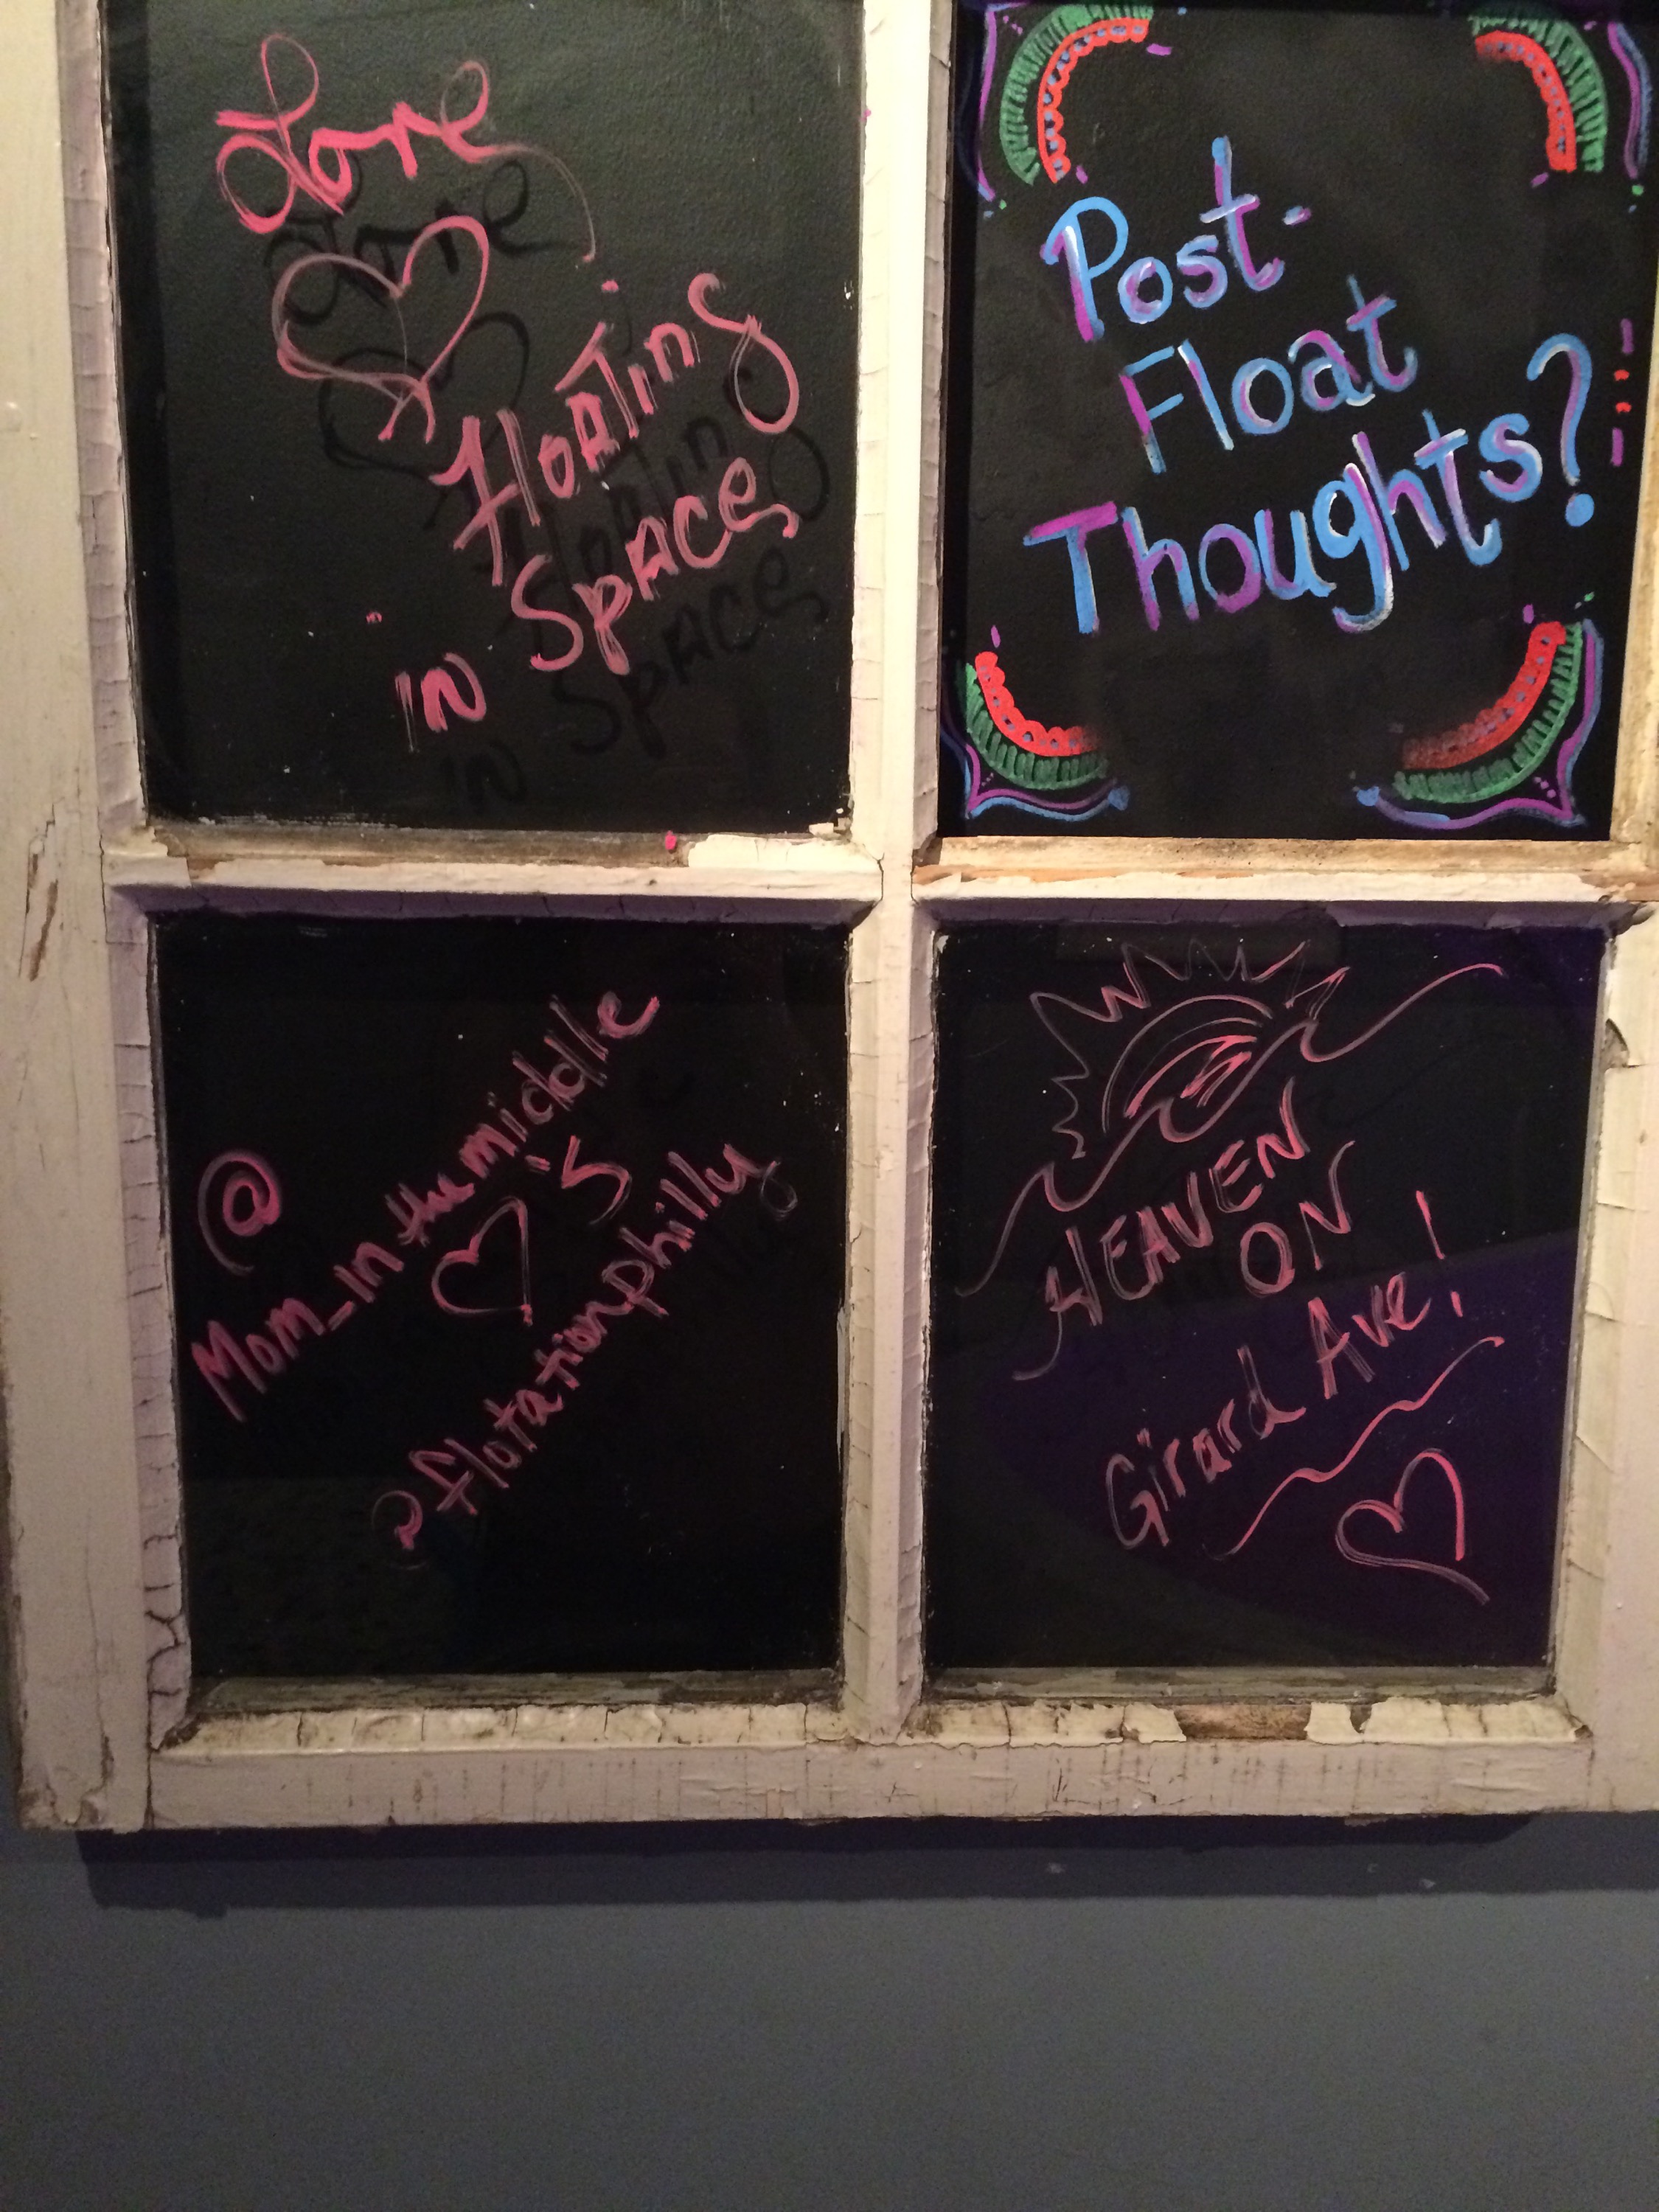 Love
Floating
in Space
Post-
Float
Thoughts?
@
Mom_in the middle
is
@flotationphilly
HEAVEN
ON
Girard Ave!